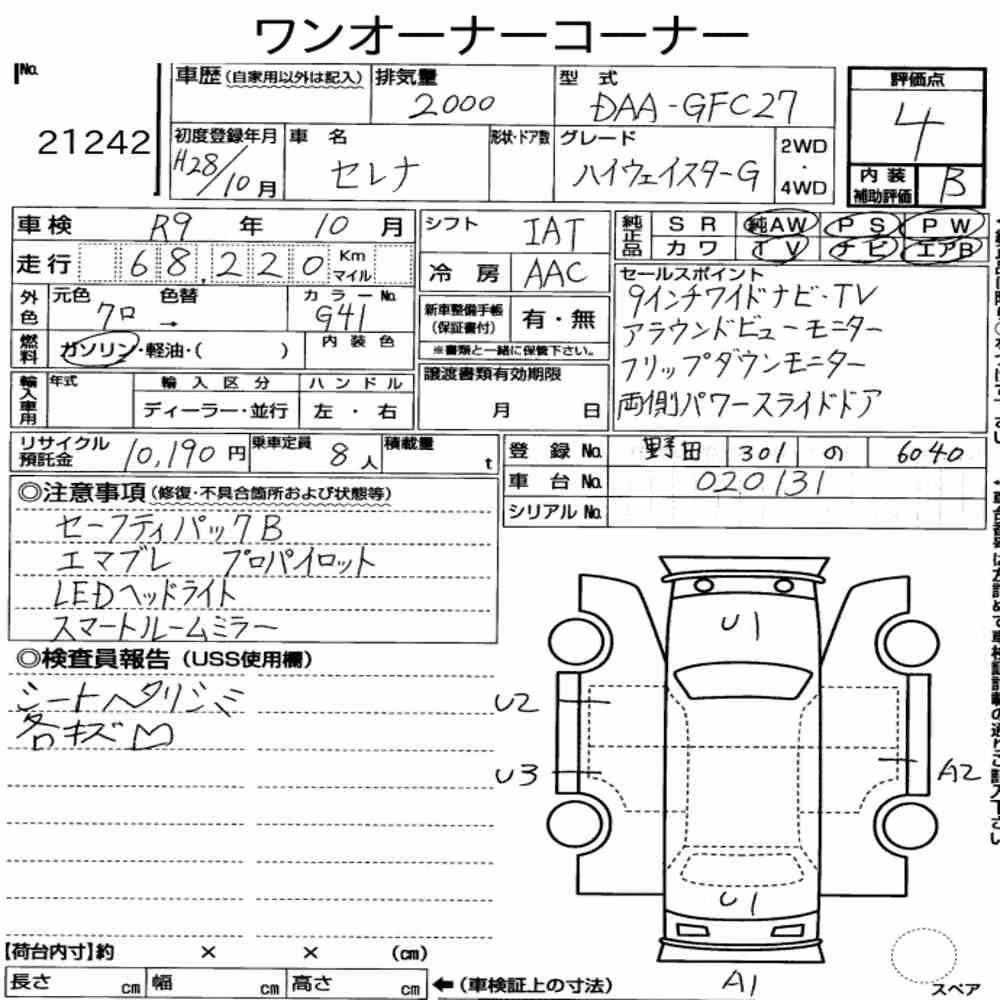 ワンオーナーコーナー
No.
21242
車歴(自家用以外は記入)
排気量
2000
型 式
DAA-GFC27
評価点
4
初度登録年月
H28/10月
車 名
セレナ
形状・ドア数
グレード
ハイウェイスターG
2WD
・
4WD
内装
補助評価
B
車検 R9 年 10 月
走行 68.220 Km
マイル
外色
元色 色替
クロ →
カラーNo.
G41
燃料
ガソリン・軽油・( )
内装色
輸入車用
年式
輸入区分
ハンドル
ディーラー・並行
左・右
シフト
IAT
冷房
AAC
新車整備手帳
(保証書付)
有・無
※書類と一緒に保管下さい。
譲渡書類有効期限
月 日
純正品
SR
純AW
PS
PW
カワ
TV
ナビ
エアB
セールスポイント
9インチワイドナビ・TV
アラウンドビューモニター
フリップダウンモニター
両側パワースライドドア
リサイクル
預託金
10,190円
乗車定員
8人
積載量
t
登録No. 野田 301 の 6040
車台No. 020131
シリアルNo.
◎注意事項(修復・不具合箇所および状態等)
セーフティパックB
エマブレ プロパイロット
LEDヘッドライト
スマートルームミラー
◎検査員報告(USS使用欄)
シートヘタリシミ
各キズ凹
U1
U2
U3
A2
U1
A1
スペア
【荷台内寸】約 × × (cm)
長さ cm 幅 cm 高さ cm
←(車検証上の寸法)